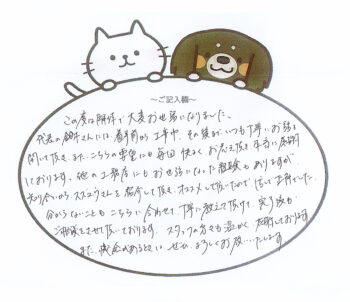 ～ご記入欄～
この度は附帯で大変お世話になりました。
代表の さんには着手前から工事中、その後までいつも丁寧にお話を
聞いて頂き、また、こちらの要望にも毎回快くお応え頂き本当に感謝
しております。他の工務店にもお世話になった経験もありますが
知り合いから さんを紹介して頂き、オススメして頂いたので信じて正解でした。
分からないこともこちらに合わせて、丁寧に教えて頂けて、実り
ご相談をさせて頂いております。スタッフの方々も温かく、感謝しております。
また、機会があるときは、ぜひ、よろしくお願いいたします